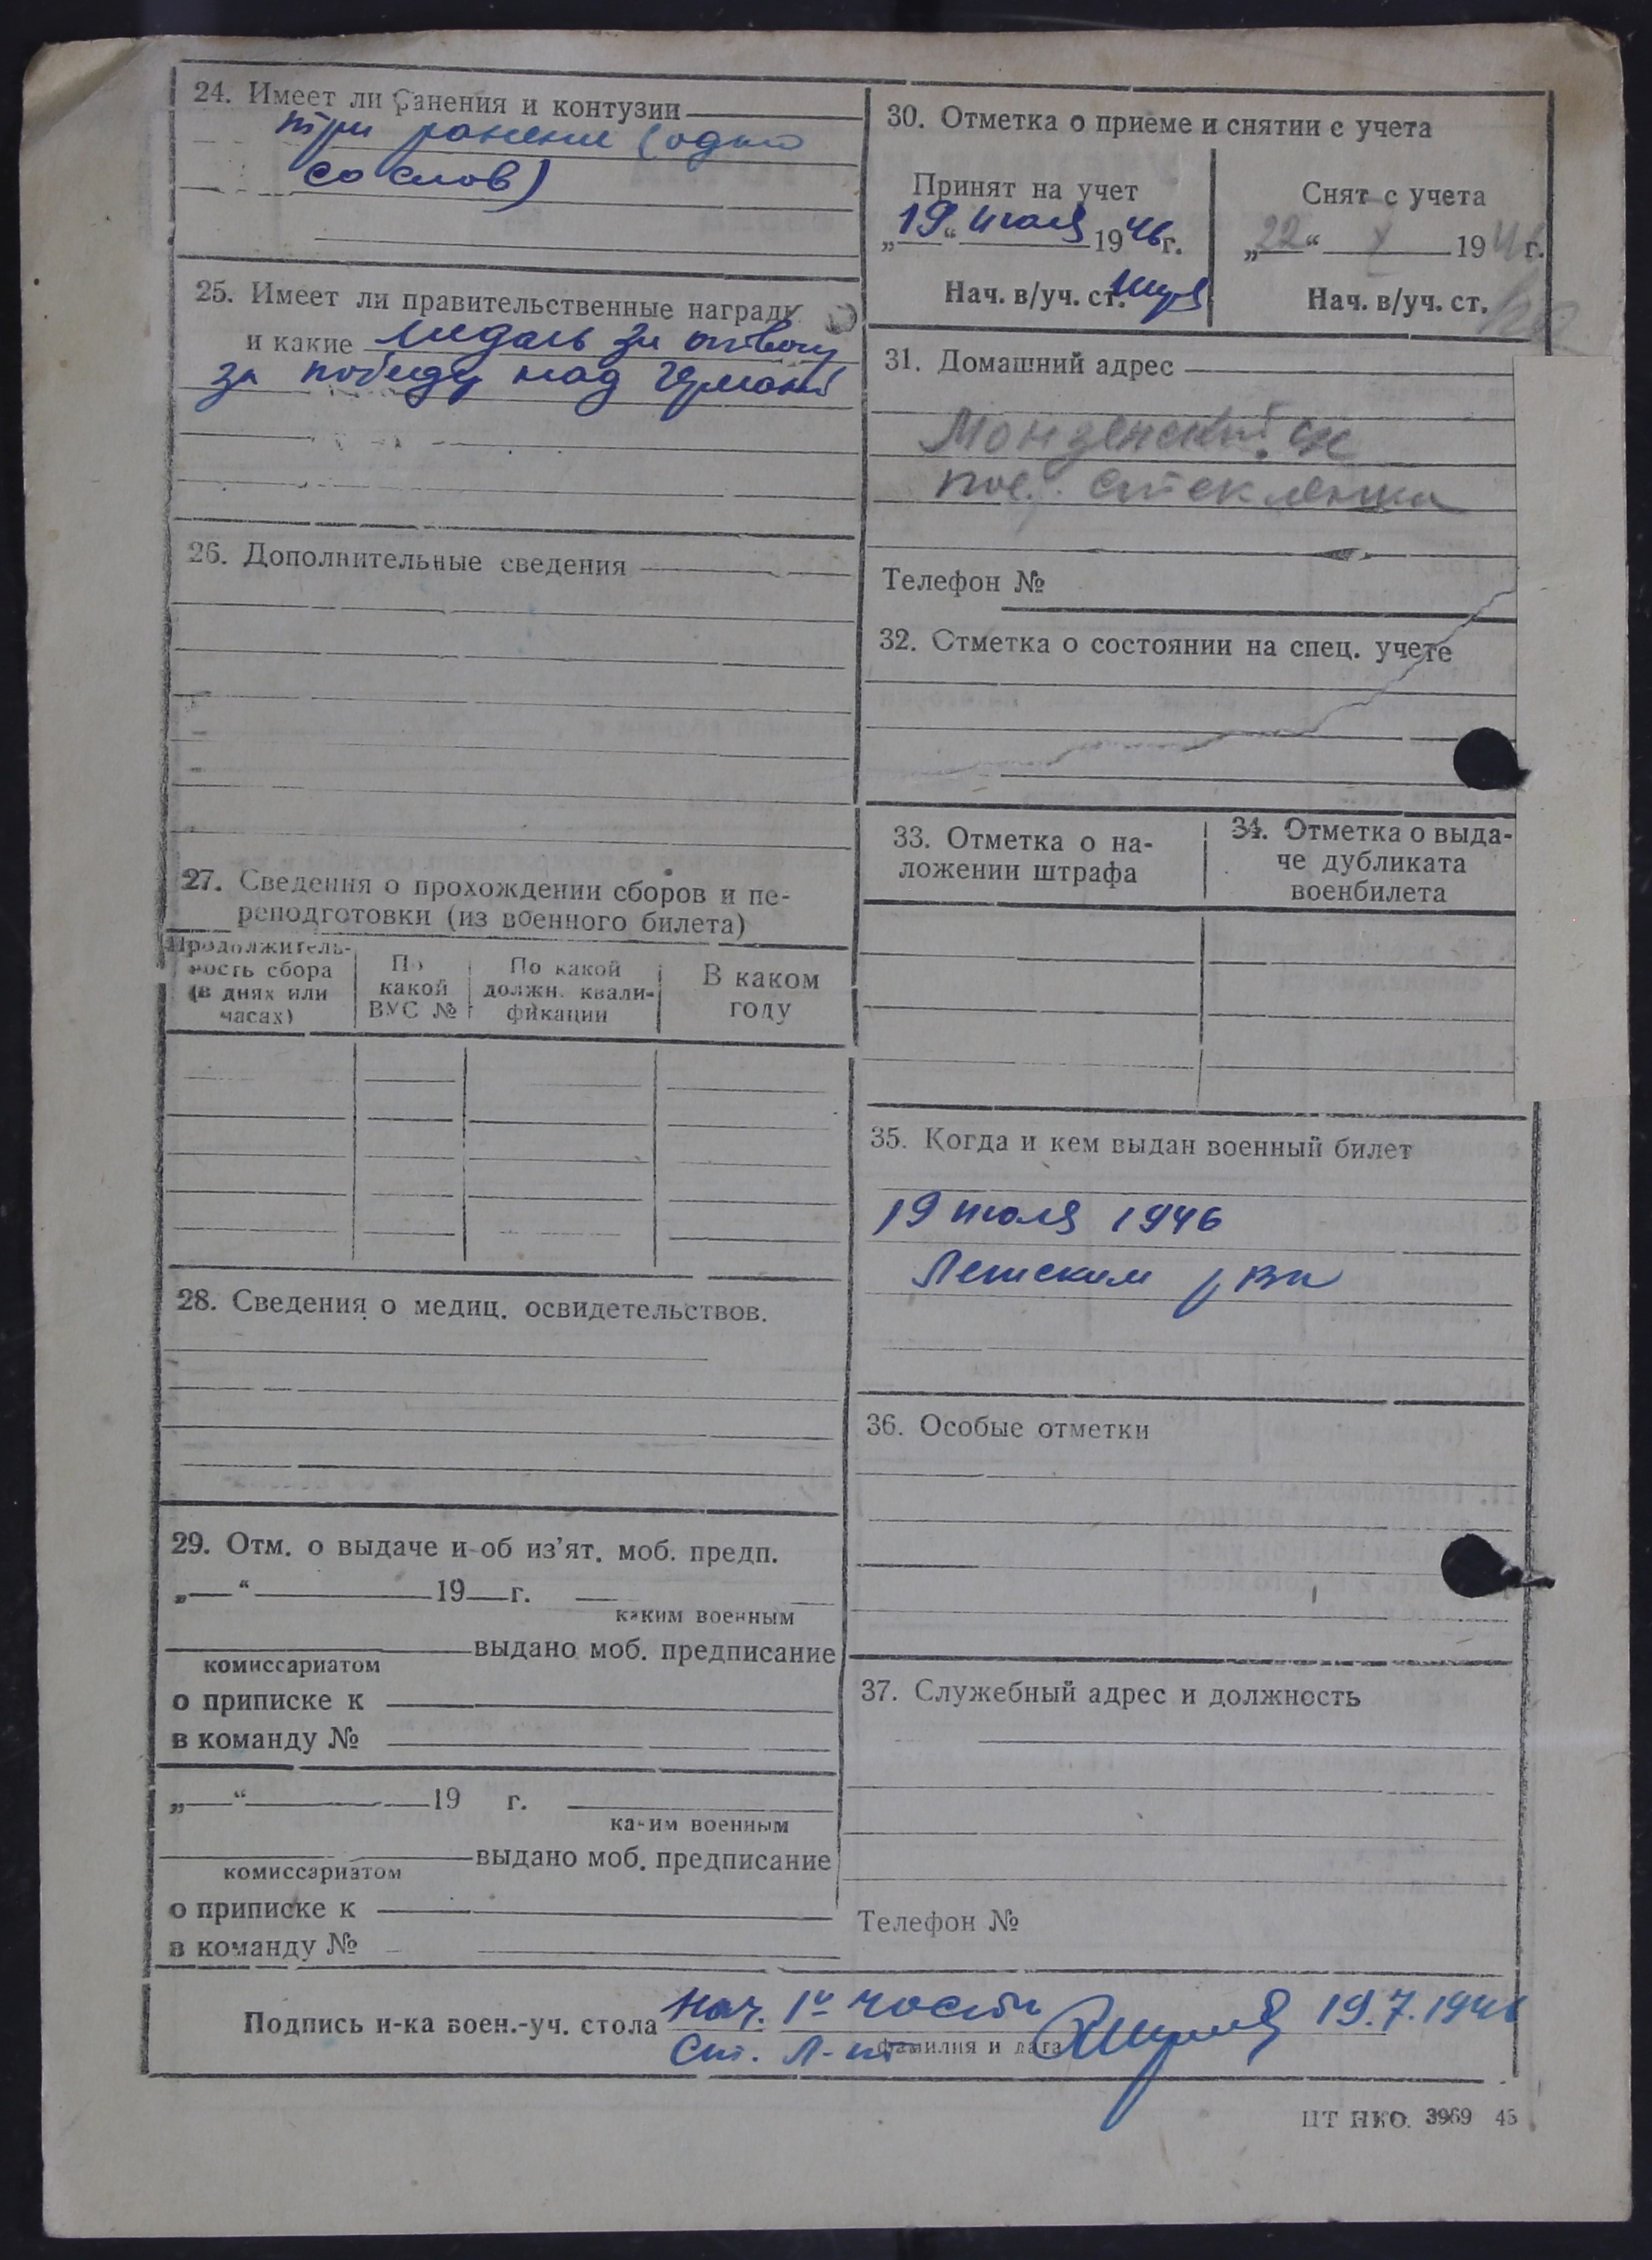 24. Имеет ли ранения и контузии
три ранения (одно
со слов)
25. Имеет ли правительственные награды
и какие медаль за отвагу
за победу над Германи
26. Дополнительные сведения
27. Сведения о прохождении сборов и пе-
реподготовки (из военного билета)
Продолжитель-
ность сбора
(в днях или
часах)
По
какой
ВУС №
По какой
должн. квали-
фикации
В каком
году
28. Сведения о медиц. освидетельствов.
29. Отм. о выдаче и об из'ят. моб. предп.
„ “ 19 г.
каким военным
выдано моб. предписание
комиссариатом
о приписке к
в команду №
„ “ 19 г.
каким военным
выдано моб. предписание
комиссариатом
о приписке к
в команду №
30. Отметка о приеме и снятии с учета
Принят на учет
„19“ июля 1946г.
Нач. в/уч. ст.
Снят с учета
„22“ X 1946г.
Нач. в/уч. ст.
31. Домашний адрес
Монзенский с/с
пос. Стеклянка
Телефон №
32. Отметка о состоянии на спец. учете
33. Отметка о на-
ложении штрафа
34. Отметка о выда-
че дубликата
военбилета
35. Когда и кем выдан военный билет
19 июля 1946
рвк
36. Особые отметки
37. Служебный адрес и должность
Телефон №
Подпись н-ка воен.-уч. стола Нач. 1й части 19.7.1946
Ст. л-нт фамилия и дата
ЦТ НКО. 3969 45